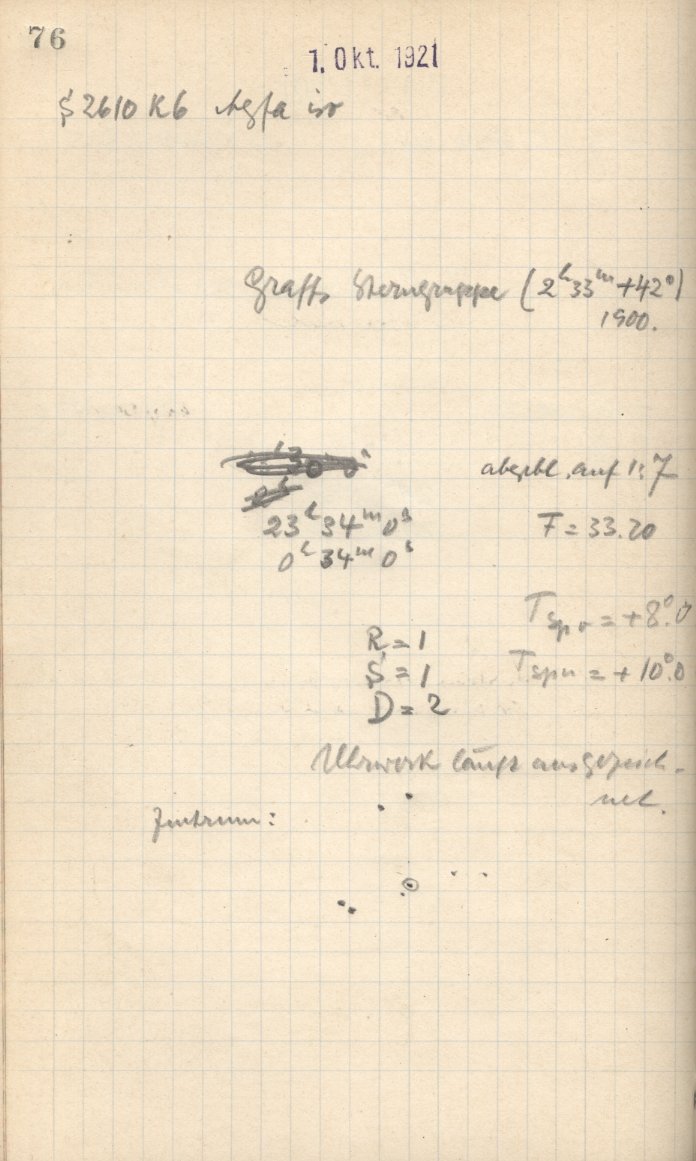 76
1. Okt. 1921
S 2610 K6 Agfa iso
Graffs Sterngruppe (2ʰ33ᵐ +42°)
1900.
abgebl. auf 1:7
23ʰ 34ᵐ 0ˢ
F = 33.20
0ʰ 34ᵐ 0ˢ
T sp o = +8°.0
R = 1
Ş = 1
T sp u = +10°.0
D = 2
Uhrwerk läuft ausgezeich-
net.
Zentrum: